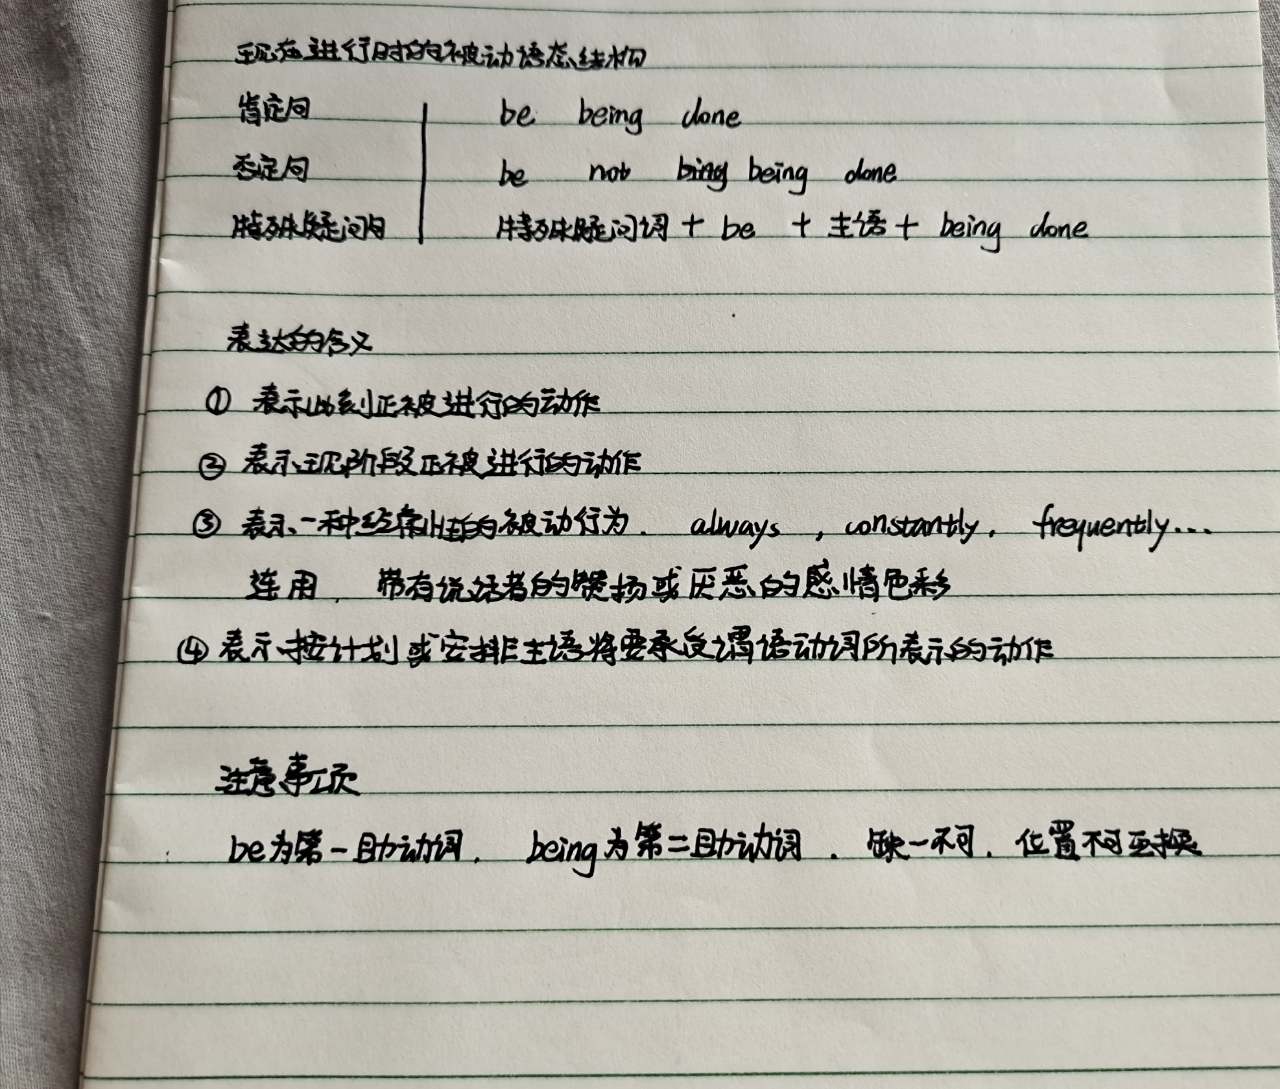 现在进行时的被动语态结构
肯定句 be being done
否定句 be not being being done
特殊疑问句 特殊疑问词 + be + 主语 + being done
表达的含义
① 表示此刻正被进行的动作
② 表示现阶段正被进行的动作
③ 表示一种经常性的被动行为. always , constantly, frequently...
连用. 带有说话者的赞扬或厌恶的感情色彩
④ 表示按计划或安排主语将要承受谓语动词所表示的动作
注意事项
be为第一助动词. being为第二助动词. 缺一不可. 位置不可互换